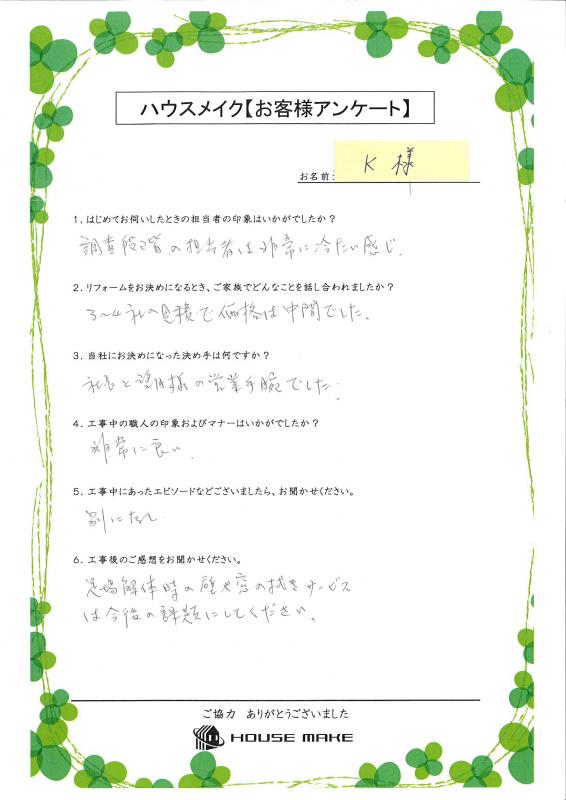 ハウスメイク【お客様アンケート】
お名前: K 様
1. はじめてお伺いしたときの担当者の印象はいかがでしたか？
調査段階の担当者は非常に冷たい感じ.
2. リフォームをお決めになるとき、ご家族でどんなことを話し合われましたか？
3〜4社の見積で価格は中間でした。
3. 当社にお決めになった決め手は何ですか？
社長と 様の営業手腕でした.
4. 工事中の職人の印象およびマナーはいかがでしたか？
非常に良い.
5. 工事中にあったエピソードなどございましたら、お聞かせください。
別になし
6. 工事後のご感想をお聞かせください。
足場解体時の壁や窓の拭きサービス
は今後の課題にしてください。
ご協力 ありがとうございました
HOUSE MAKE